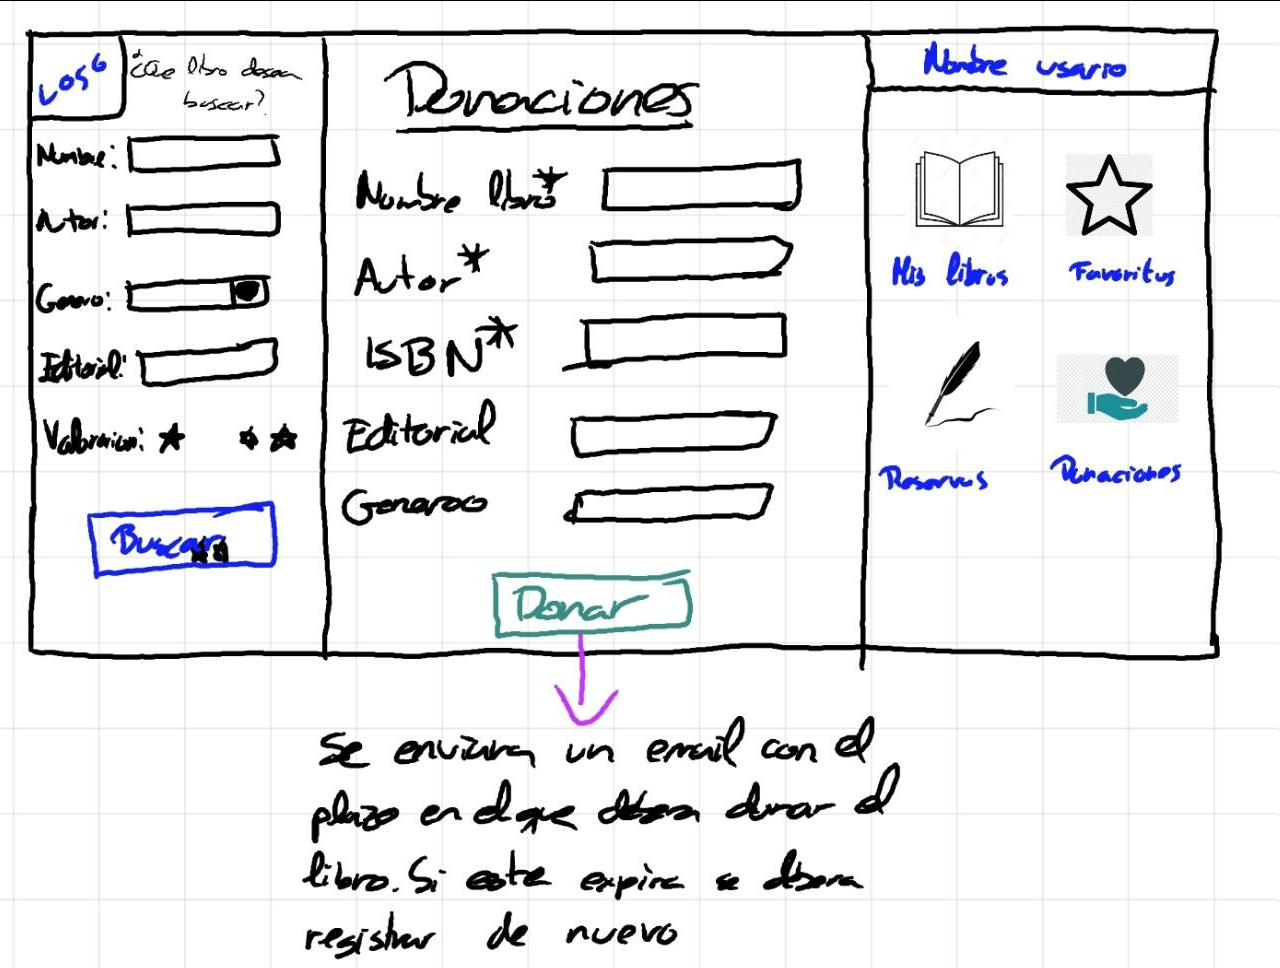 LOGO
¿Que libro desea
buscar?
Nombre:
Autor:
Genero:
Editorial:
Valoracion:
Buscar
Donaciones
Nombre libro*
Autor*
ISBN*
Editorial
Genero
Donar
Nombre usario
Mis libros
Favoritos
Reservas
Donaciones
Se enviara un email con el
plazo en el que debera donar el
libro. Si este expira se debera
registrar de nuevo